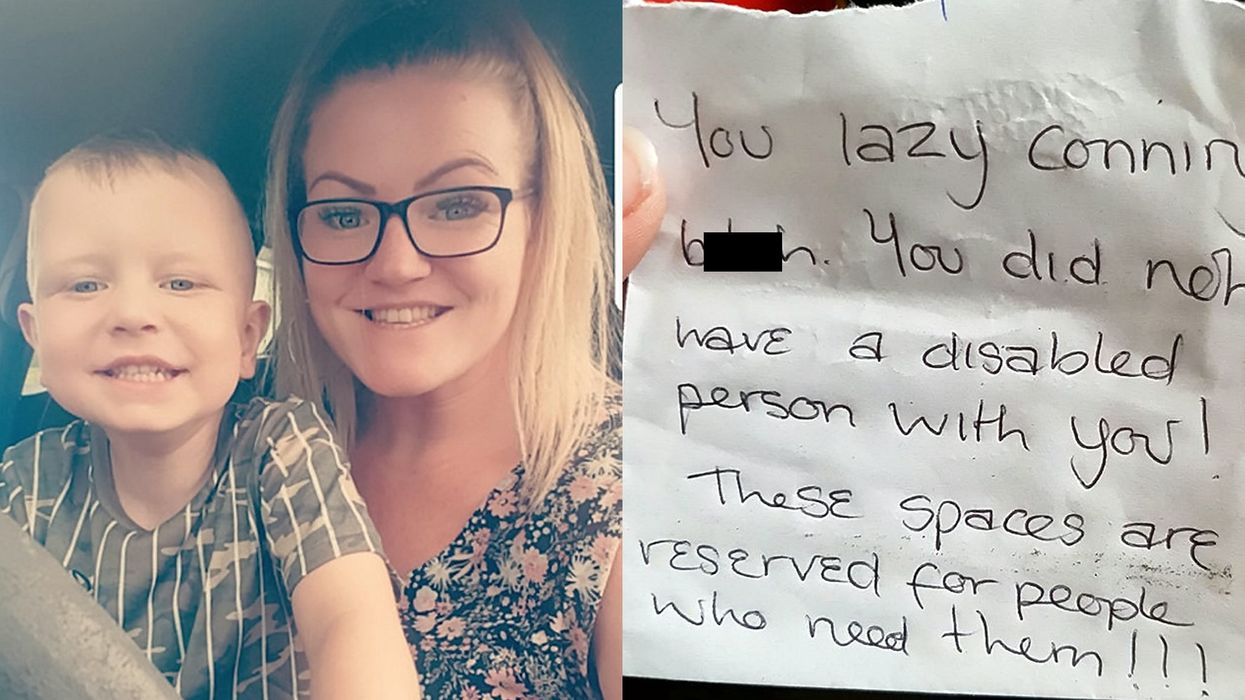 You lazy connin
b h. You did not
have a disabled
person with you!
These spaces are
reserved for people
who need them!!!